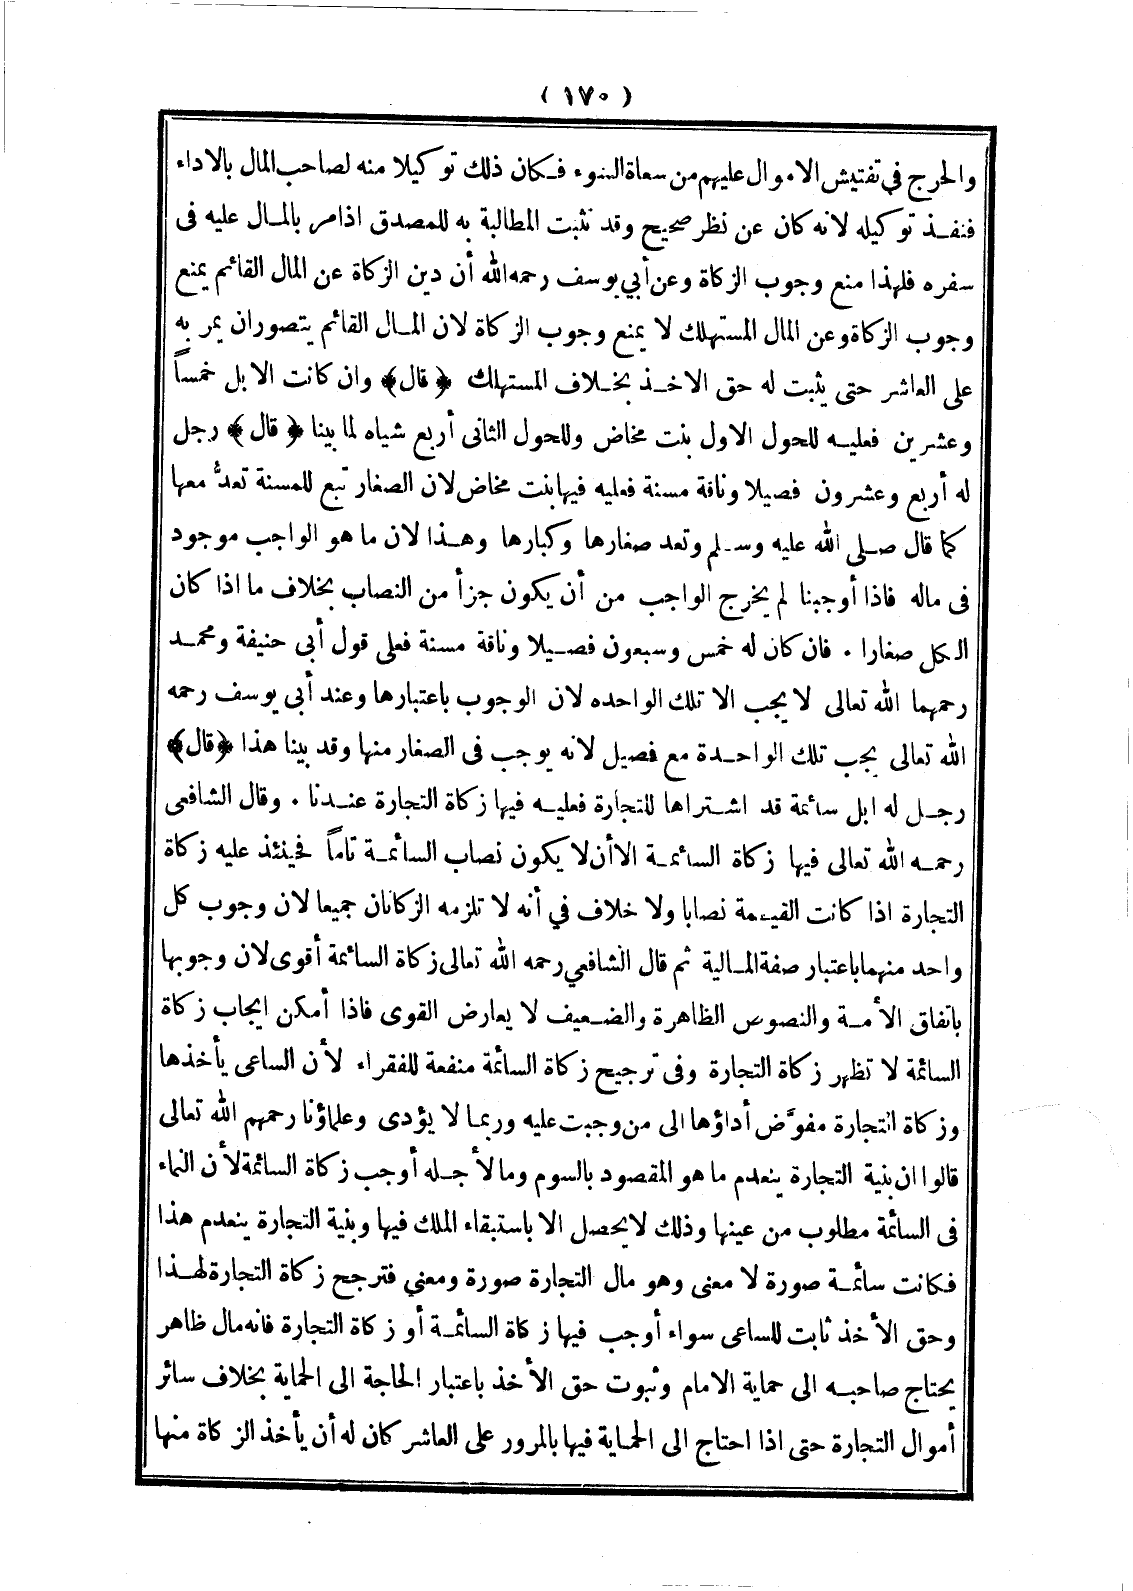 ( ١٧٠ )
والحرج في تفتيش الاموال عليهم من سعاة السوء فكان ذلك توكيلا منه لصاحب المال بالاداء
فنفذ توكيله لانه كان عن نظر صحيح وقد تثبت المطالبة به للمصدق اذا مر بالمال عليه فى
سفره فلهذا منع وجوب الزكاة وعن أبي يوسف رحمه الله أن دين الزكاة عن المال القائم يمنع
وجوب الزكاة وعن المال المستهلك لا يمنع وجوب الزكاة لان المال القائم يتصور ان يمر به
على العاشر حتى يثبت له حق الاخذ بخلاف المستهلك ﴿ قال﴾ وان كانت الابل خمساً
وعشرين فعليه للحول الاول بنت مخاض وللحول الثانى أربع شياه لما بينا ﴿ قال﴾ رجل
له أربع وعشرون فصيلا وناقة مسنة فعليه فيها بنت مخاض لان الصغار تبع للمسنة تعدُّ معها
كما قال صلى الله عليه وسلم وتعد صغارها وكبارها وهذا لان ما هو الواجب موجود
فى ماله فاذا أوجبنا لم يخرج الواجب من أن يكون جزأ من النصاب بخلاف ما اذا كان
الكل صغارا . فان كان له خمس وسبعون فصيلا وناقة مسنة فعلى قول أبى حنيفة ومحمد
رحمهما الله تعالى لا يجب الا تلك الواحده لان الوجوب باعتبارها وعند أبى يوسف رحمه
الله تعالى يجب تلك الواحدة مع فصيل لانه يوجب فى الصغار منها وقد بينا هذا ﴿قال﴾
رجل له ابل سائمة قد اشتراها للتجارة فعليه فيها زكاة التجارة عندنا . وقال الشافعى
رحمه الله تعالى فيها زكاة السائمة الا أن لا يكون نصاب السائمة تاماً فحينئذ عليه زكاة
التجارة اذا كانت القيمة نصابا ولا خلاف في أنه لا تلزمه الزكاتان جميعا لان وجوب كل
واحد منهما باعتبار صفة المالية ثم قال الشافعي رحمه الله تعالى زكاة السائمة أقوى لان وجوبها
باتفاق الأمة والنصوص الظاهرة والضعيف لا يعارض القوى فاذا أمكن ايجاب زكاة
السائمة لا تظهر زكاة التجارة وفى ترجيح زكاة السائمة منفعة للفقراء لأن الساعى يأخذها
وزكاة التجارة مفوَّض أداؤها الى من وجبت عليه وربما لا يؤدى وعلماؤنا رحمهم الله تعالى
قالوا ان بنية التجارة ينعدم ما هو المقصود بالسوم وما لأجله أوجب زكاة السائمة لأن النماء
فى السائمة مطلوب من عينها وذلك لا يحصل الا باستبقاء الملك فيها وبنية التجارة ينعدم هذا
فكانت سائمة صورة لا معنى وهو مال التجارة صورة ومعني فترجح زكاة التجارة لهذا
وحق الأخذ ثابت للساعى سواء أوجب فيها زكاة السائمة أو زكاة التجارة فانه مال ظاهر
يحتاج صاحبه الى حماية الامام وثبوت حق الأخذ باعتبار الحاجة الى الحماية بخلاف سائر
أموال التجارة حتى اذا احتاج الى الحماية فيها بالمرور على العاشر كان له أن يأخذ الزكاة منها